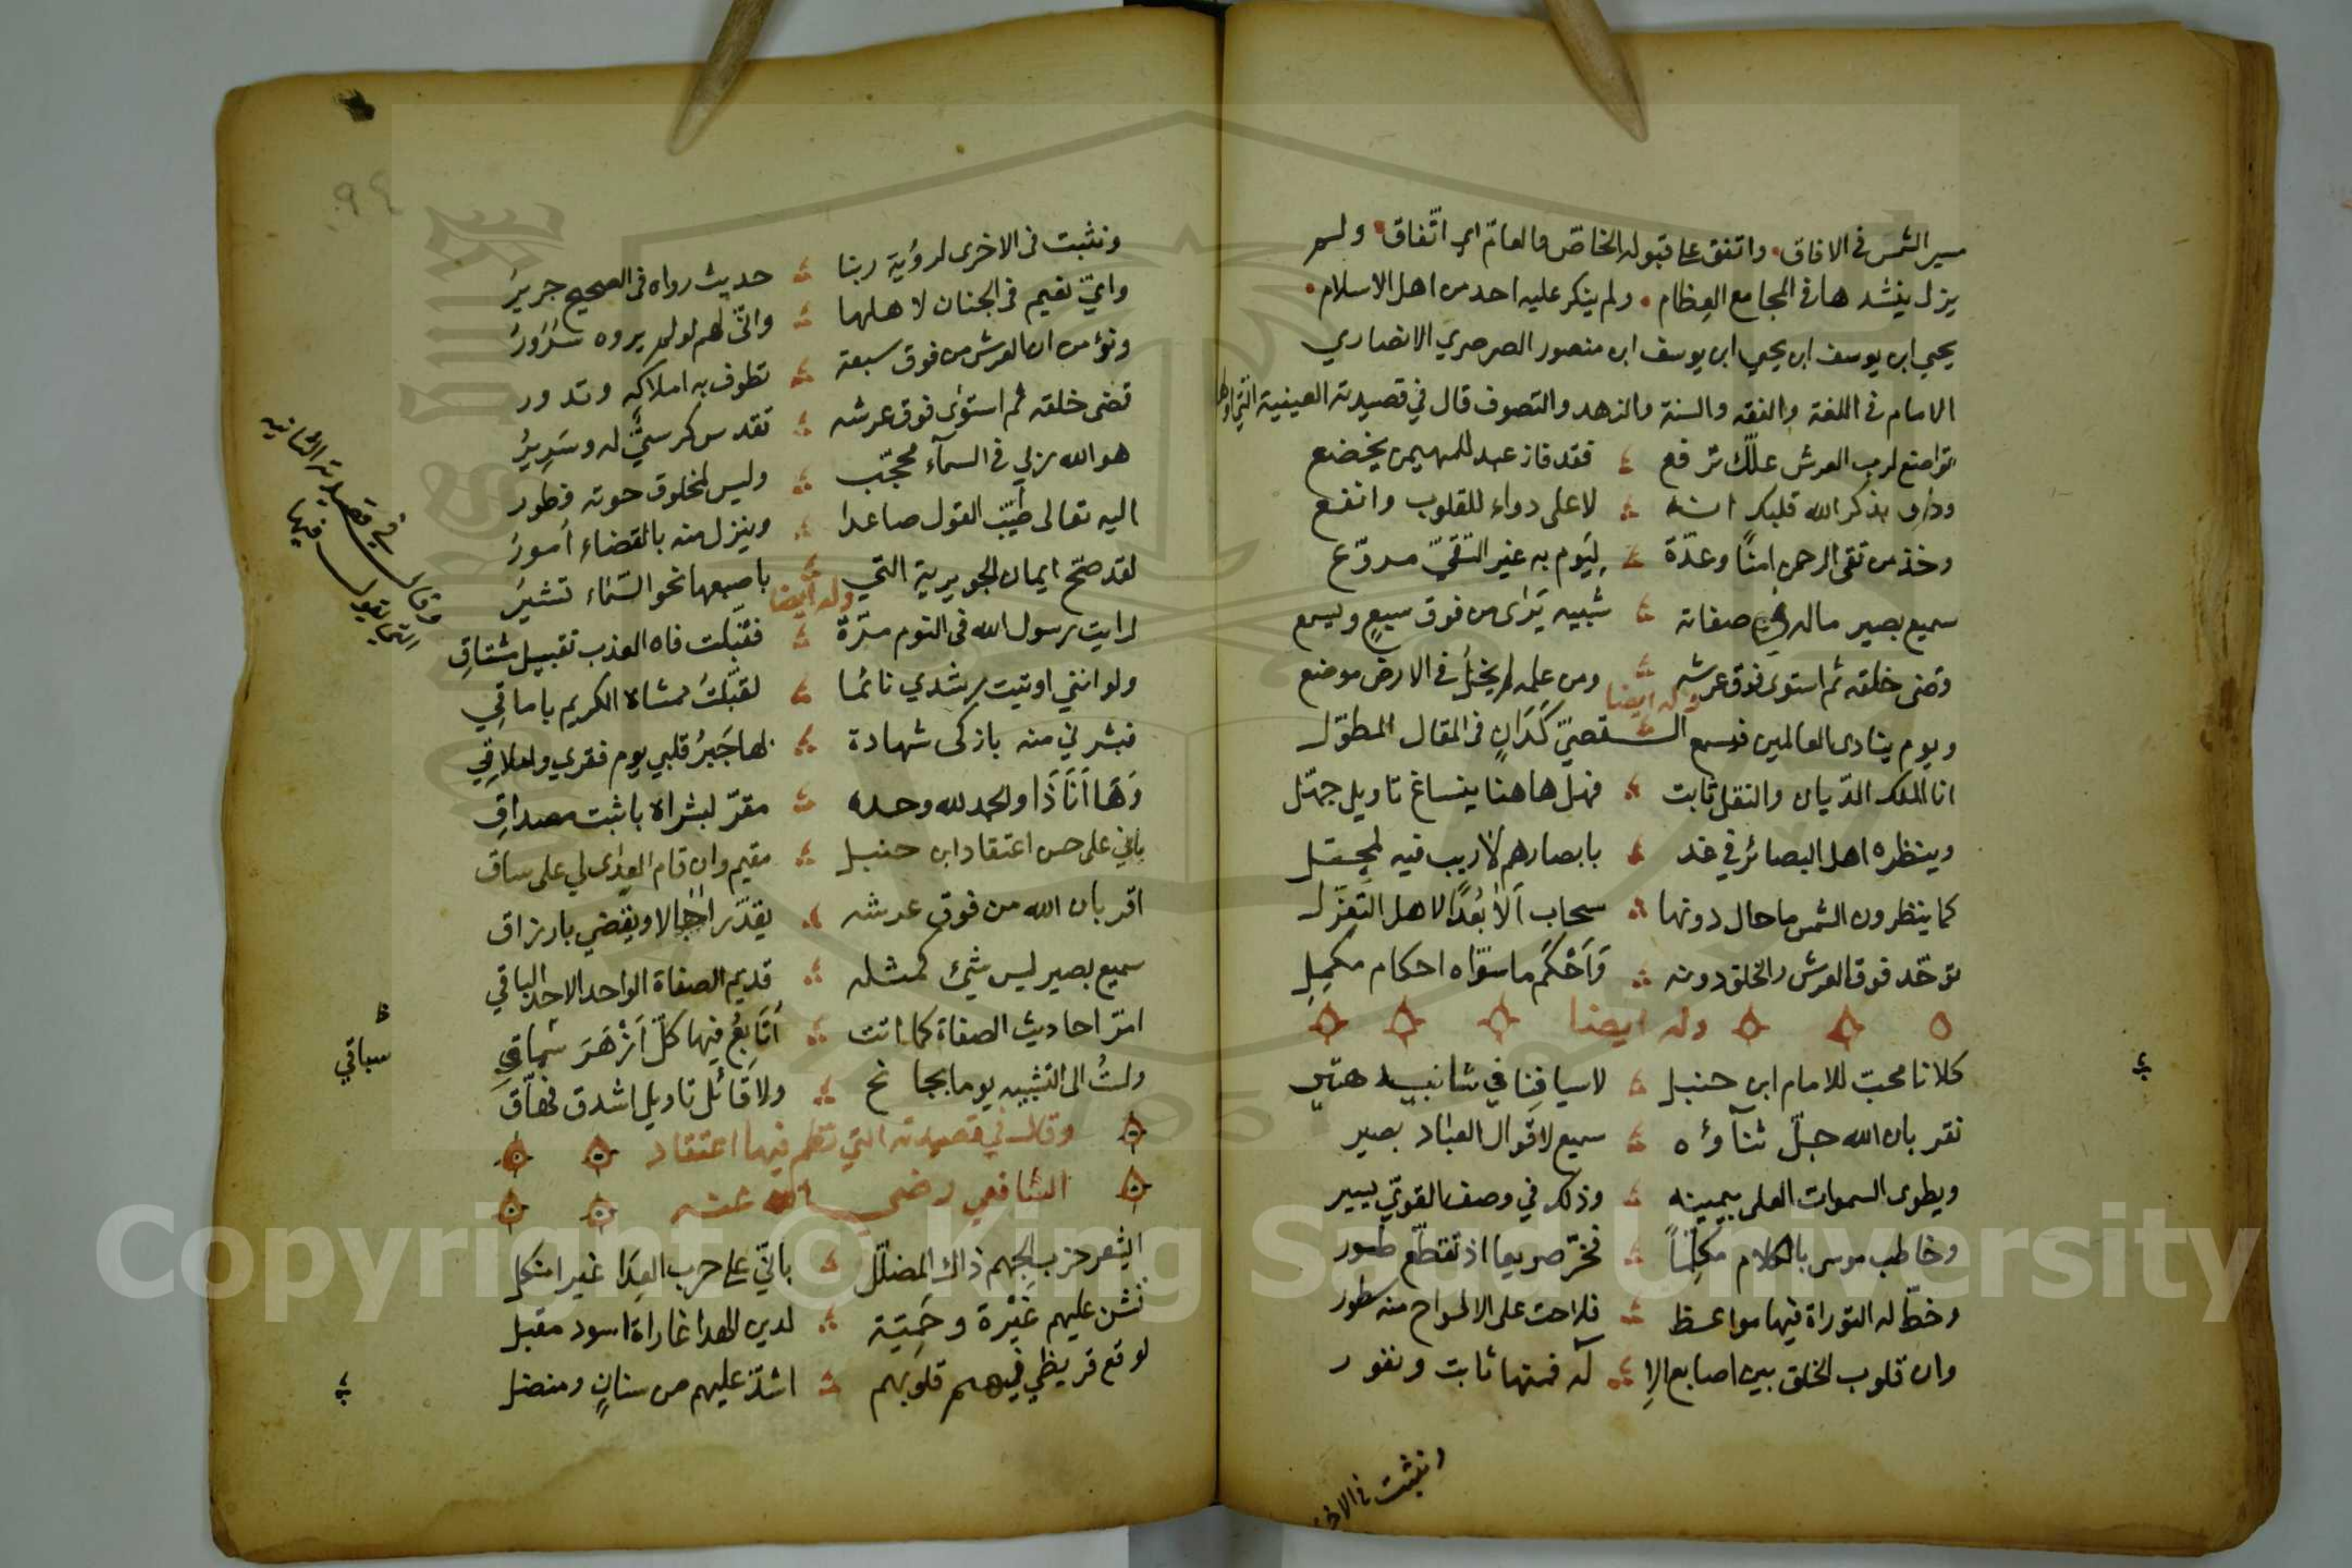 مسير الشمس في الافاق • واتفق على قبوله الخاص والعام اي اتّفاق • ولم
يزل ينشدها في المجامع العظام • ولم ينكر عليه احد من اهل الاسلام •
يحيى ابن يوسف ابن يحيى ابن يوسف ابن منصور الصرصري الانصاري
الامام في اللغة والفقه والسنة والزهد والتصوف قال في قصيدته العينية التي اولها
تواضع لرب العرش علّك ترفع فقد فاز عبد للمهيمن يخضع
وداو بذكر الله قلبك انه لاعلى دواء للقلوب وانفع
وخذ من تقى الرحمن امنًا وعدّة ليوم به غير التقيّ مروّع
سميع بصير ماله في صفاته شبيه يَرَى من فوق سبعٍ ويسمع
وقضى خلقه ثم استوى فوق عرشه ومن علمه لم يخلُ في الارض موضع
وله ايضا
ويوم ينادى العالمين فيسمع القصيّ كَدَانٍ في المقال المطوّل
انا الملك الدّيان والنقل ثابت فهل هاهنا ينساغ تاويل جهّل
وينظره اهل البصائر في غد بابصارهم لا ريب فيه لمجتل
كما ينظرون الشمس ما حال دونها سحاب اَلَا بُعدًا لاهل التعزّل
توحّد فوق العرش والخلق دونه وَاَحْكَمَ ما سوّاه احكام مكمِلِ
وله ايضا
كلانا محبّ للامام ابن حنبل لاسيافنا في شانيه هتير
نقر بان الله جلّ ثناؤه سميع لاقوال العباد بصير
ويطوى السموات العلى بيمينه وذلك في وصف القويّ يسير
وخاطب موسى بالكلام مكلّمًا فخرّ صريعا اذ تقطّع طور
وخطّ له التوراة فيها مواعظ فلاحت على الالواح منه سطور
وان قلوب الخلق بين اصابع الإ له فمنها ثابت ونفور
ونثبت في الاخر
٩٤
ونثبت في الاخرى لرؤية ربنا حديث رواه في الصحيح جرير
وايّ نعيم في الجنان لاهلها وانّى لهم لو لم يروه سُرُورُ
ونؤمن ان العرش من فوق سبعة تطوف به املاكه وتدور
قضى خلقه ثم استوى فوق عرشه تقدس كرسيٌّ له وسَرِيرُ
هو الله ربي في السمآء محجّب وليس لمخلوق حوته فطور
اليه تعالى طيّب القول صاعدا وينزل منه بالقضاء اُمورُ
لقد صحّ ايمان الجويرية التي باصبعها نحو السّماء تشيرُ
وله ايضا
لرايت رسول الله في النوم مرّة فقبّلت فاه العذب تقبيل مشتاقِ
ولو انني اوتيت رشدي نائما لقبّلتُ ممشاه الكريم باماقِي
فبشرني منه بازكى شهادة لها جَبرُ قلبي يوم فقري واملاقِي
وَهَا اَنَا ذَا والحمد لله وحده مقرّ لبشراه باثبت مصداقِ
باني على حسن اعتقاد ابن حنبل مقيم وان قام العِدَى لي على ساق
اقر بان الله من فوق عرشه يقدّر اٰجالا ويقضي بارزاق
سميع بصير ليس شيئ كمثله قديم الصفاة الواحد الاحد الباقي
امرّ احاديث الصفاة كما اتت اُتَابِعُ فيها كلّ اَزْهَرَ سباقي
ولستُ الى التشبيه يوما بجانح ولا قائل تاويل اشدق نهّاق
وقال في قصيدته التي نظم فيها اعتقاد
الشافعي رضي الله عنه
ايشعر حزب الجهم ذاك المضلّل باني على حرب العِدَا غير انكل
نشن عليهم غَيْرة وحَمِيّة لدين الهدا غاراة اسود مقبل
لوقع قريظي فيهم قلوبهم اشدّ عليهم من سنانٍ ومنصل
وقال في قصيدته الثانيه
يقول فيها
ظ
سباقي